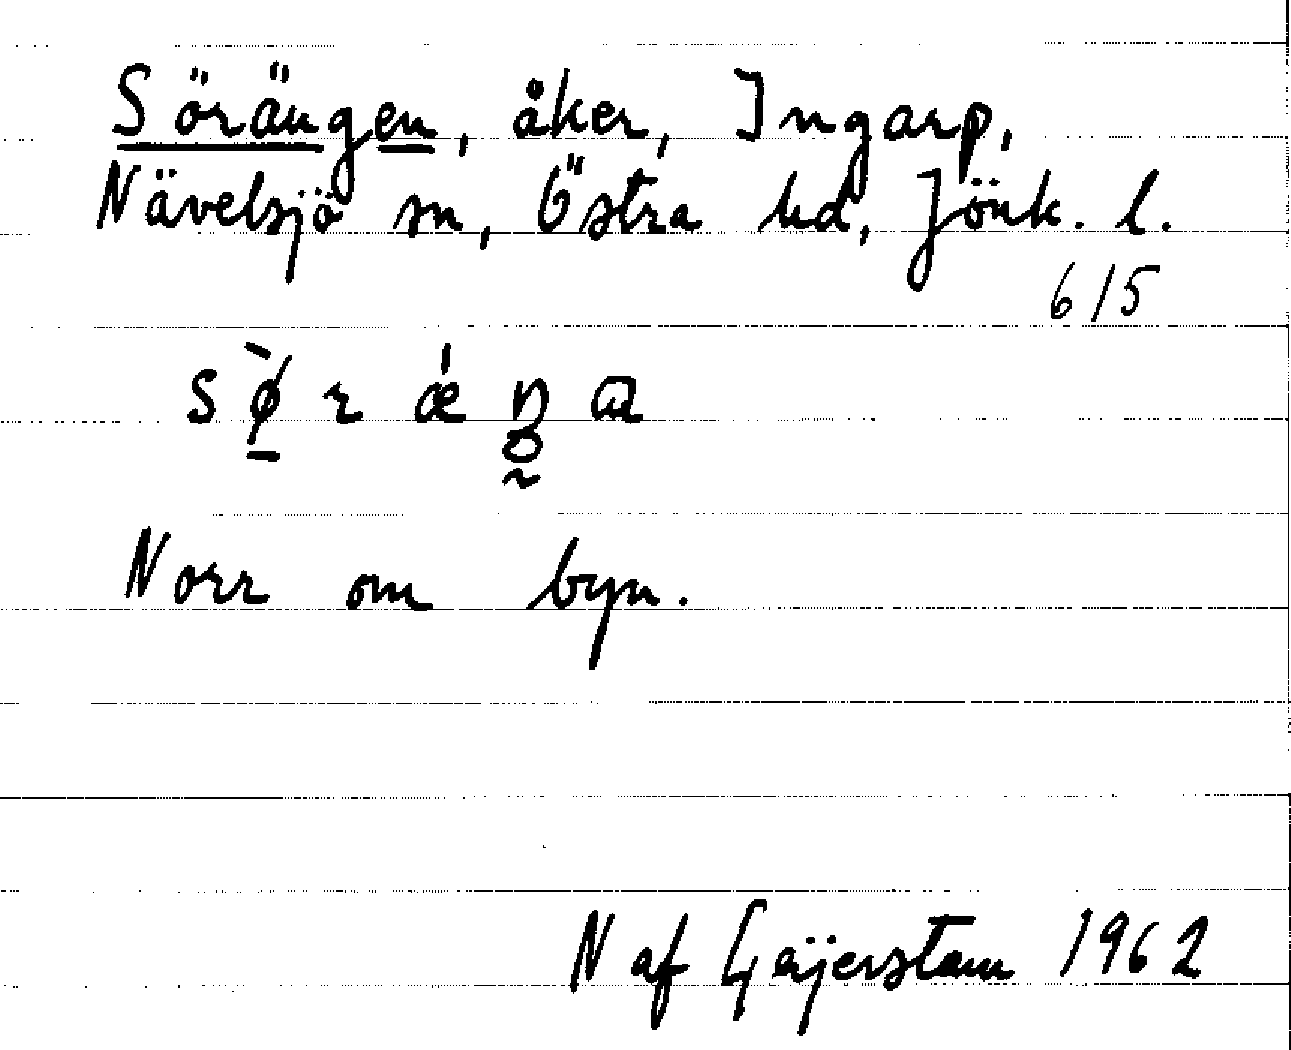 Sörängen, åker, Ingarp,
Nävelsjö sn, Östra hd, Jönk. l.
6/5
Norr om byn.
N af Geijerstam 1962